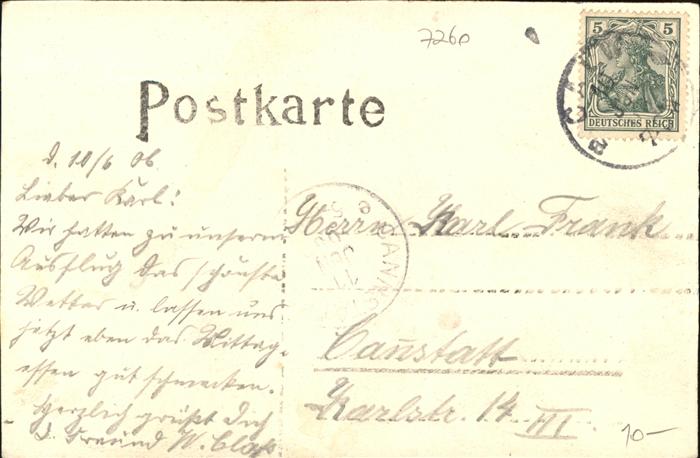 7260
5 5
DEUTSCHES REICH
Postkarte
d. 10/6 06.
Lieber Karl!
Wir hatten zu unserm
Ausflug das schönste
Wetter u. lassen uns
jetzt eben das Mittag-
essen gut schmecken.
Herzlich grüßt Dich
D. Freund W. Claß
Herrn Karl Frank
Canstatt
Karlstr. 14 III
10-